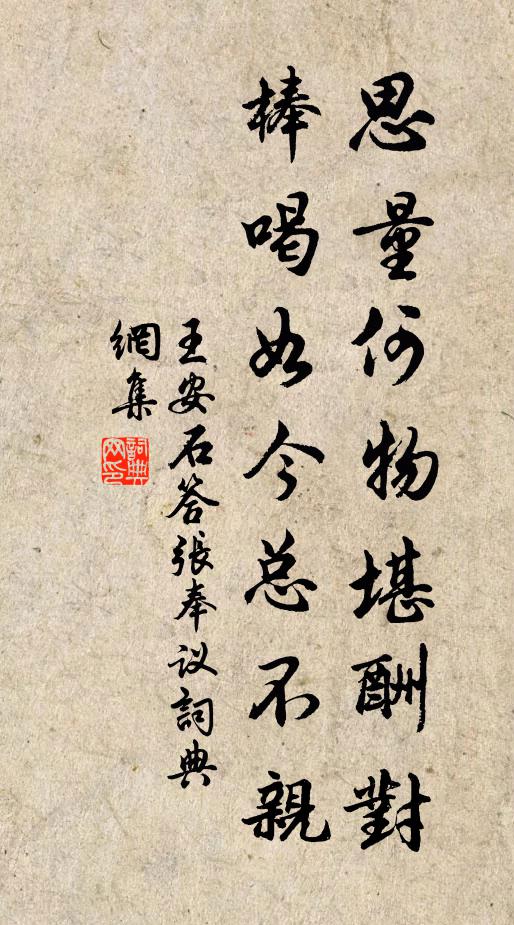 思量何物堪酬對
棒喝如今总不親
王安石答張奉议詞典
網集
詞典网印